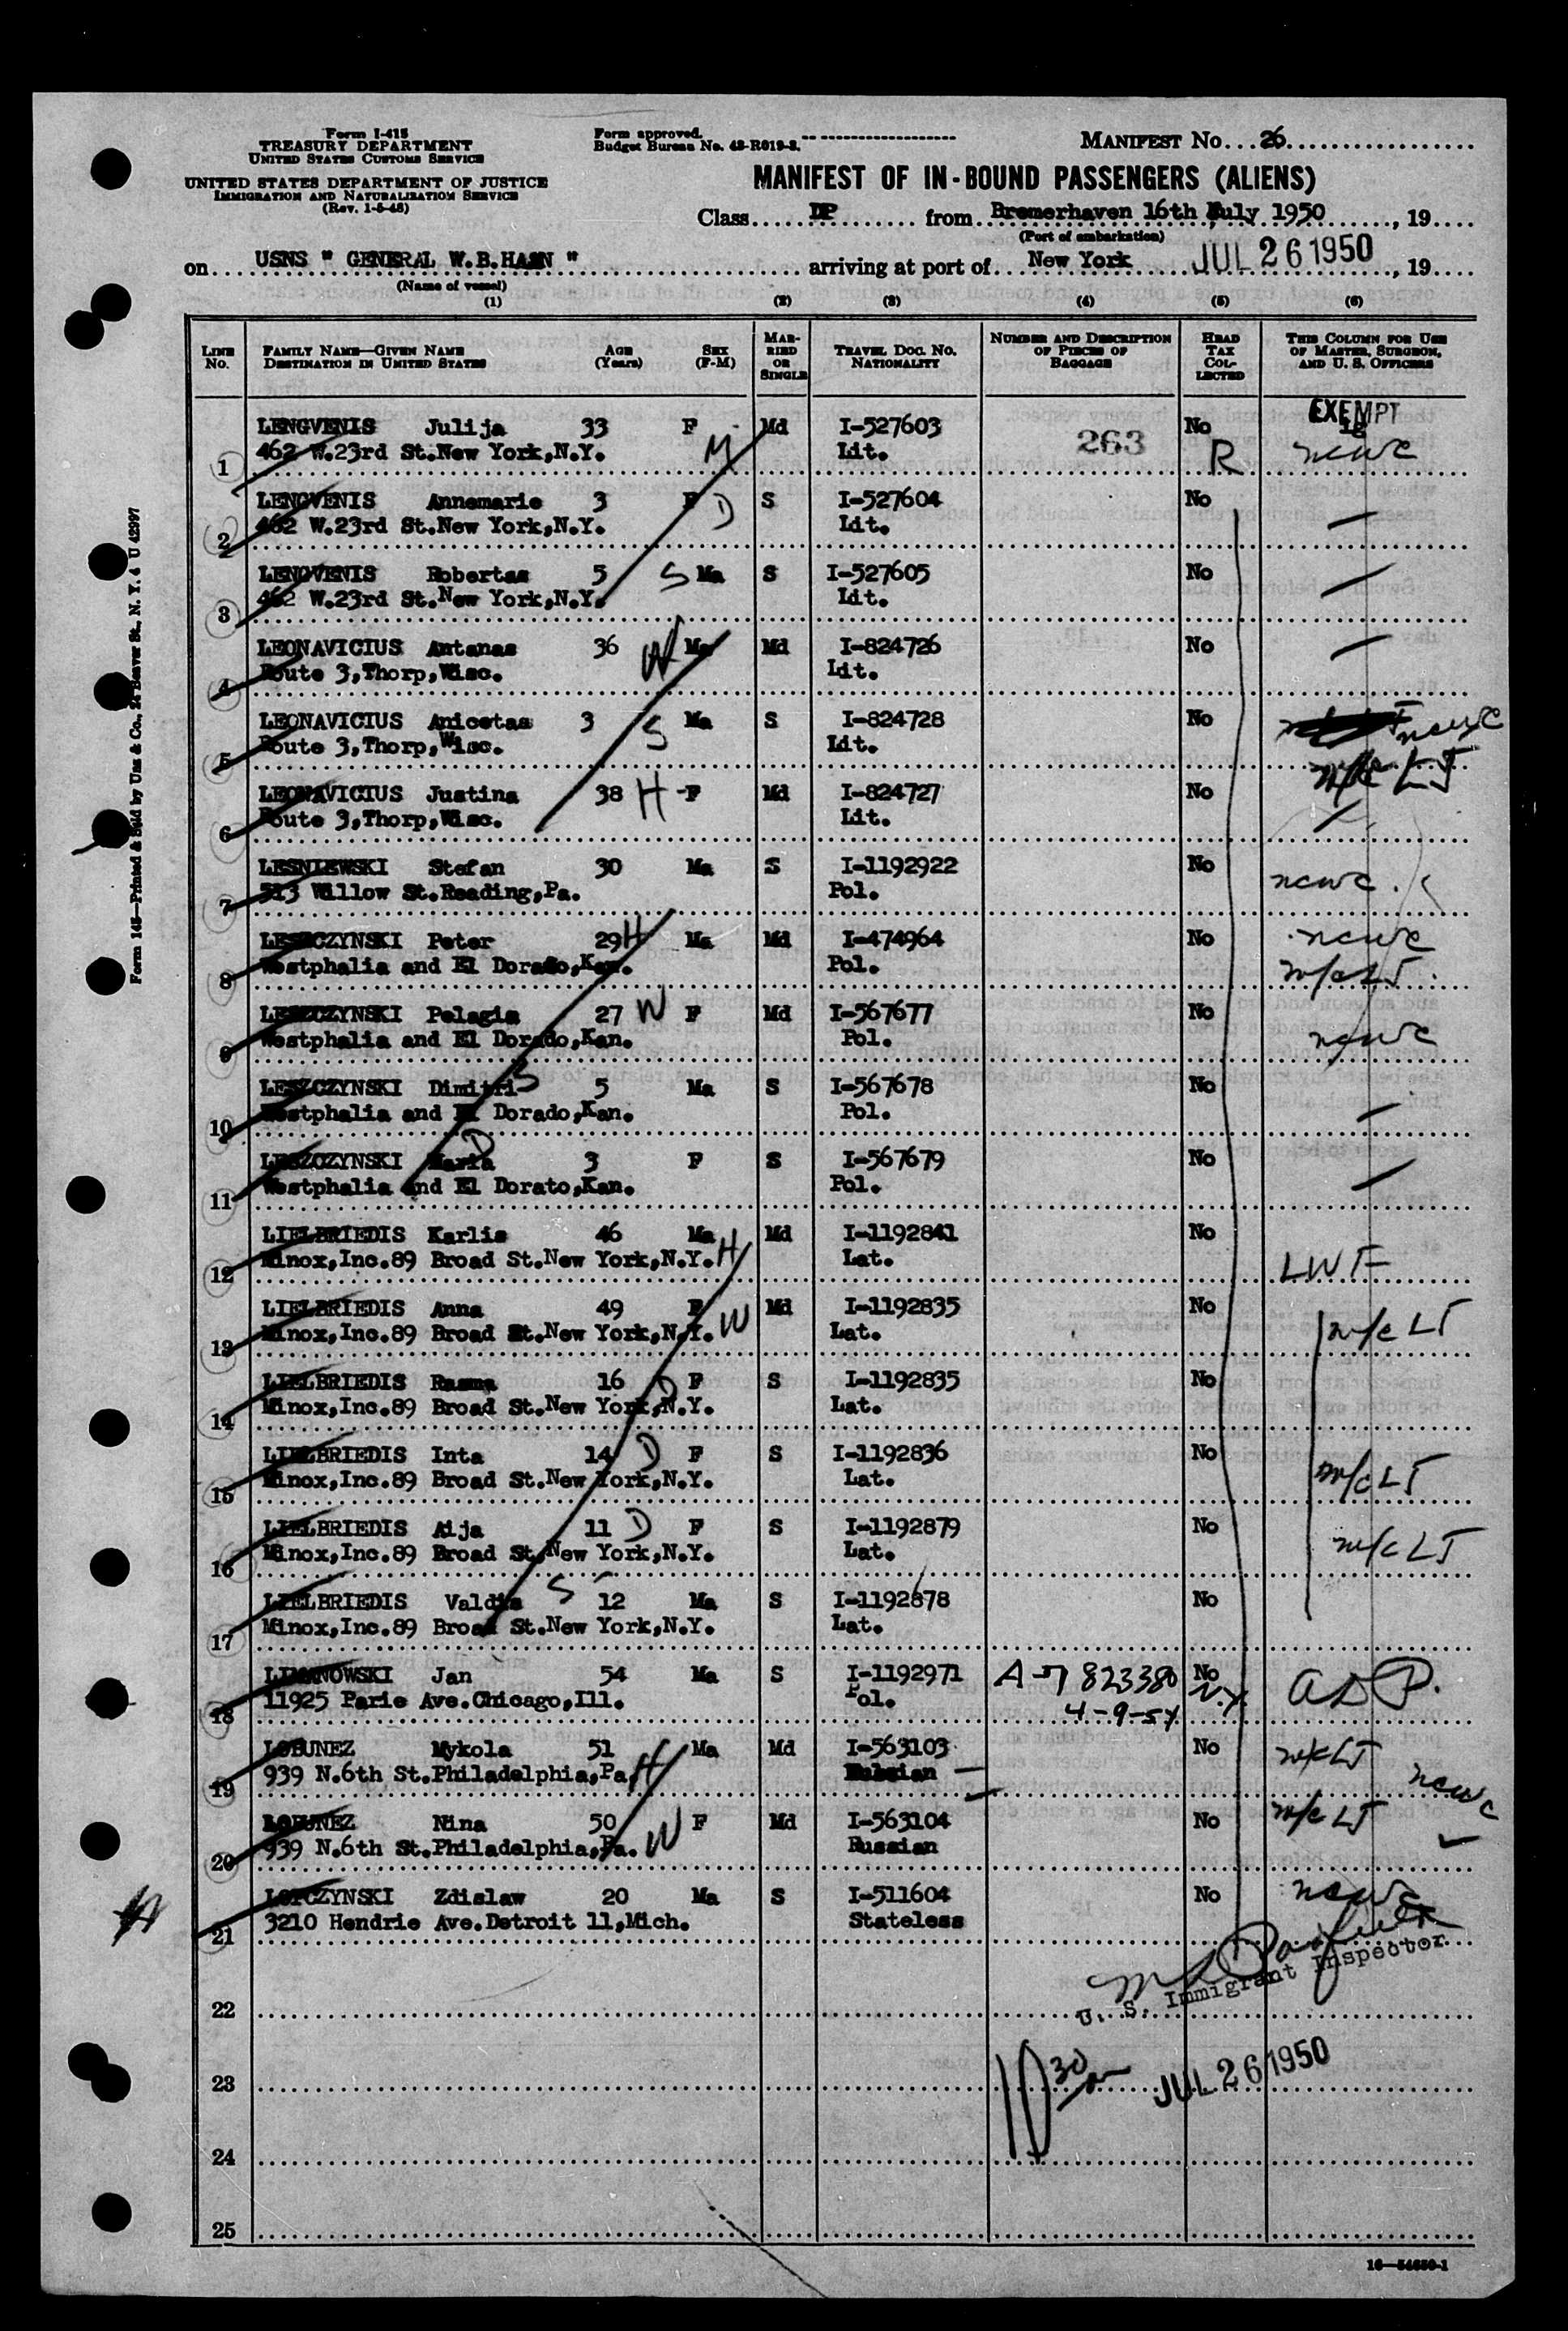 Form I-415
TREASURY DEPARTMENT
UNITED STATES CUSTOMS SERVICE
UNITED STATES DEPARTMENT OF JUSTICE
IMMIGRATION AND NATURALIZATION SERVICE
(Rev. 1-5-48)
Form approved.
Budget Bureau No. 43-R019-3.
MANIFEST No. 26
MANIFEST OF IN-BOUND PASSENGERS (ALIENS)
Class DP from Bremerhaven 16th July 1950, 19
(Port of embarkation)
on USNS " GENERAL W.B.HAAN " arriving at port of New York JUL 26 1950, 19
(Name of vessel)
(1) (2) (3) (4) (5) (6)
LINE No. FAMILY NAME—GIVEN NAME DESTINATION IN UNITED STATES AGE (Years) SEX (F-M) MARRIED OR SINGLE TRAVEL DOC. NO. NATIONALITY NUMBER AND DESCRIPTION OF PIECES OF BAGGAGE HEAD TAX COLLECTED THIS COLUMN FOR USE OF MASTER, SURGEON, AND U. S. OFFICERS
EXEMPT
LENGVENIS Julija 33 F Md I-527603 263 No
1 462 W.23rd St.New York,N.Y. M Lit. R ncwc
LENGVENIS Annemarie 3 F S I-527604 No
2 462 W.23rd St.New York,N.Y. D Lit.
LENGVENIS Robertas 5 S Ma S I-527605 No
3 462 W.23rd St.New York,N.Y. Lit.
LEONAVICIUS Antanas 36 W Ma Md I-824726 No
4 Route 3,Thorp,Wisc. Lit.
LEONAVICIUS Anicetas 3 S Ma S I-824728 No ncwc
5 Route 3,Thorp,Wisc. Lit.
m/c LT
LEONAVICIUS Justina 38 H F Md I-824727 No
6 Route 3,Thorp,Wisc. Lit.
LESNIEWSKI Stefan 30 Ma S I-1192922 No
7 513 Willow St.Reading,Pa. Pol. ncwc.
LESZCZYNSKI Peter 29 H Ma Md I-474964 No ncwc
8 Westphalia and El Dorado,Kan. Pol. m/c LT
LESZCZYNSKI Pelagia 27 W F Md I-567677 No
9 Westphalia and El Dorado,Kan. Pol. ncwc
LESZCZYNSKI Dimitri S 5 Ma S I-567678 No
10 Westphalia and El Dorado,Kan. Pol.
LESZCZYNSKI Maria D 3 F S I-567679 No
11 Westphalia and El Dorato,Kan. Pol.
LIELBRIEDIS Karlis 46 Ma Md I-1192841 No
12 Minox,Inc.89 Broad St.New York,N.Y. H Lat. LWF
LIELBRIEDIS Anna 49 F Md I-1192835 No
13 Minox,Inc.89 Broad St.New York,N.Y. W Lat. m/c LT
LIELBRIEDIS Rasma 16 D F S I-1192835 No
14 Minox,Inc.89 Broad St.New York,N.Y. Lat.
LIELBRIEDIS Inta 14 D F S I-1192836 No
15 Minox,Inc.89 Broad St.New York,N.Y. Lat. m/c LT
LIELBRIEDIS Aija 11 D F S I-1192879 No
16 Minox,Inc.89 Broad St.New York,N.Y. Lat. m/c LT
LIELBRIEDIS Valdis S 12 Ma S I-1192878 No
17 Minox,Inc.89 Broad St.New York,N.Y. Lat.
LIMANOWSKI Jan 54 Ma S I-1192971 A-7 823380 No
18 11925 Parie Ave.Chicago,Ill. Pol. 4-9-54 N.Y.
LOBUNEZ Mykola 51 Ma Md I-563103 No m/c LT
19 939 N.6th St.Philadelphia,Pa. H Russian ncwc
LOBUNEZ Nina 50 F Md I-563104 No m/c LT
20 939 N.6th St.Philadelphia,Pa. W Russian
LOPCZYNSKI Zdislaw 20 Ma S I-511604 No ncwc
21 3210 Hendrie Ave.Detroit 11,Mich. Stateless
U. S. Immigrant Inspector
22
10 30 JUL 26 1950
23
24
25
16—54630-1
Form 145—Printed & Sold by Unz & Co., 24 Beaver St., N. Y. 4 U 42997